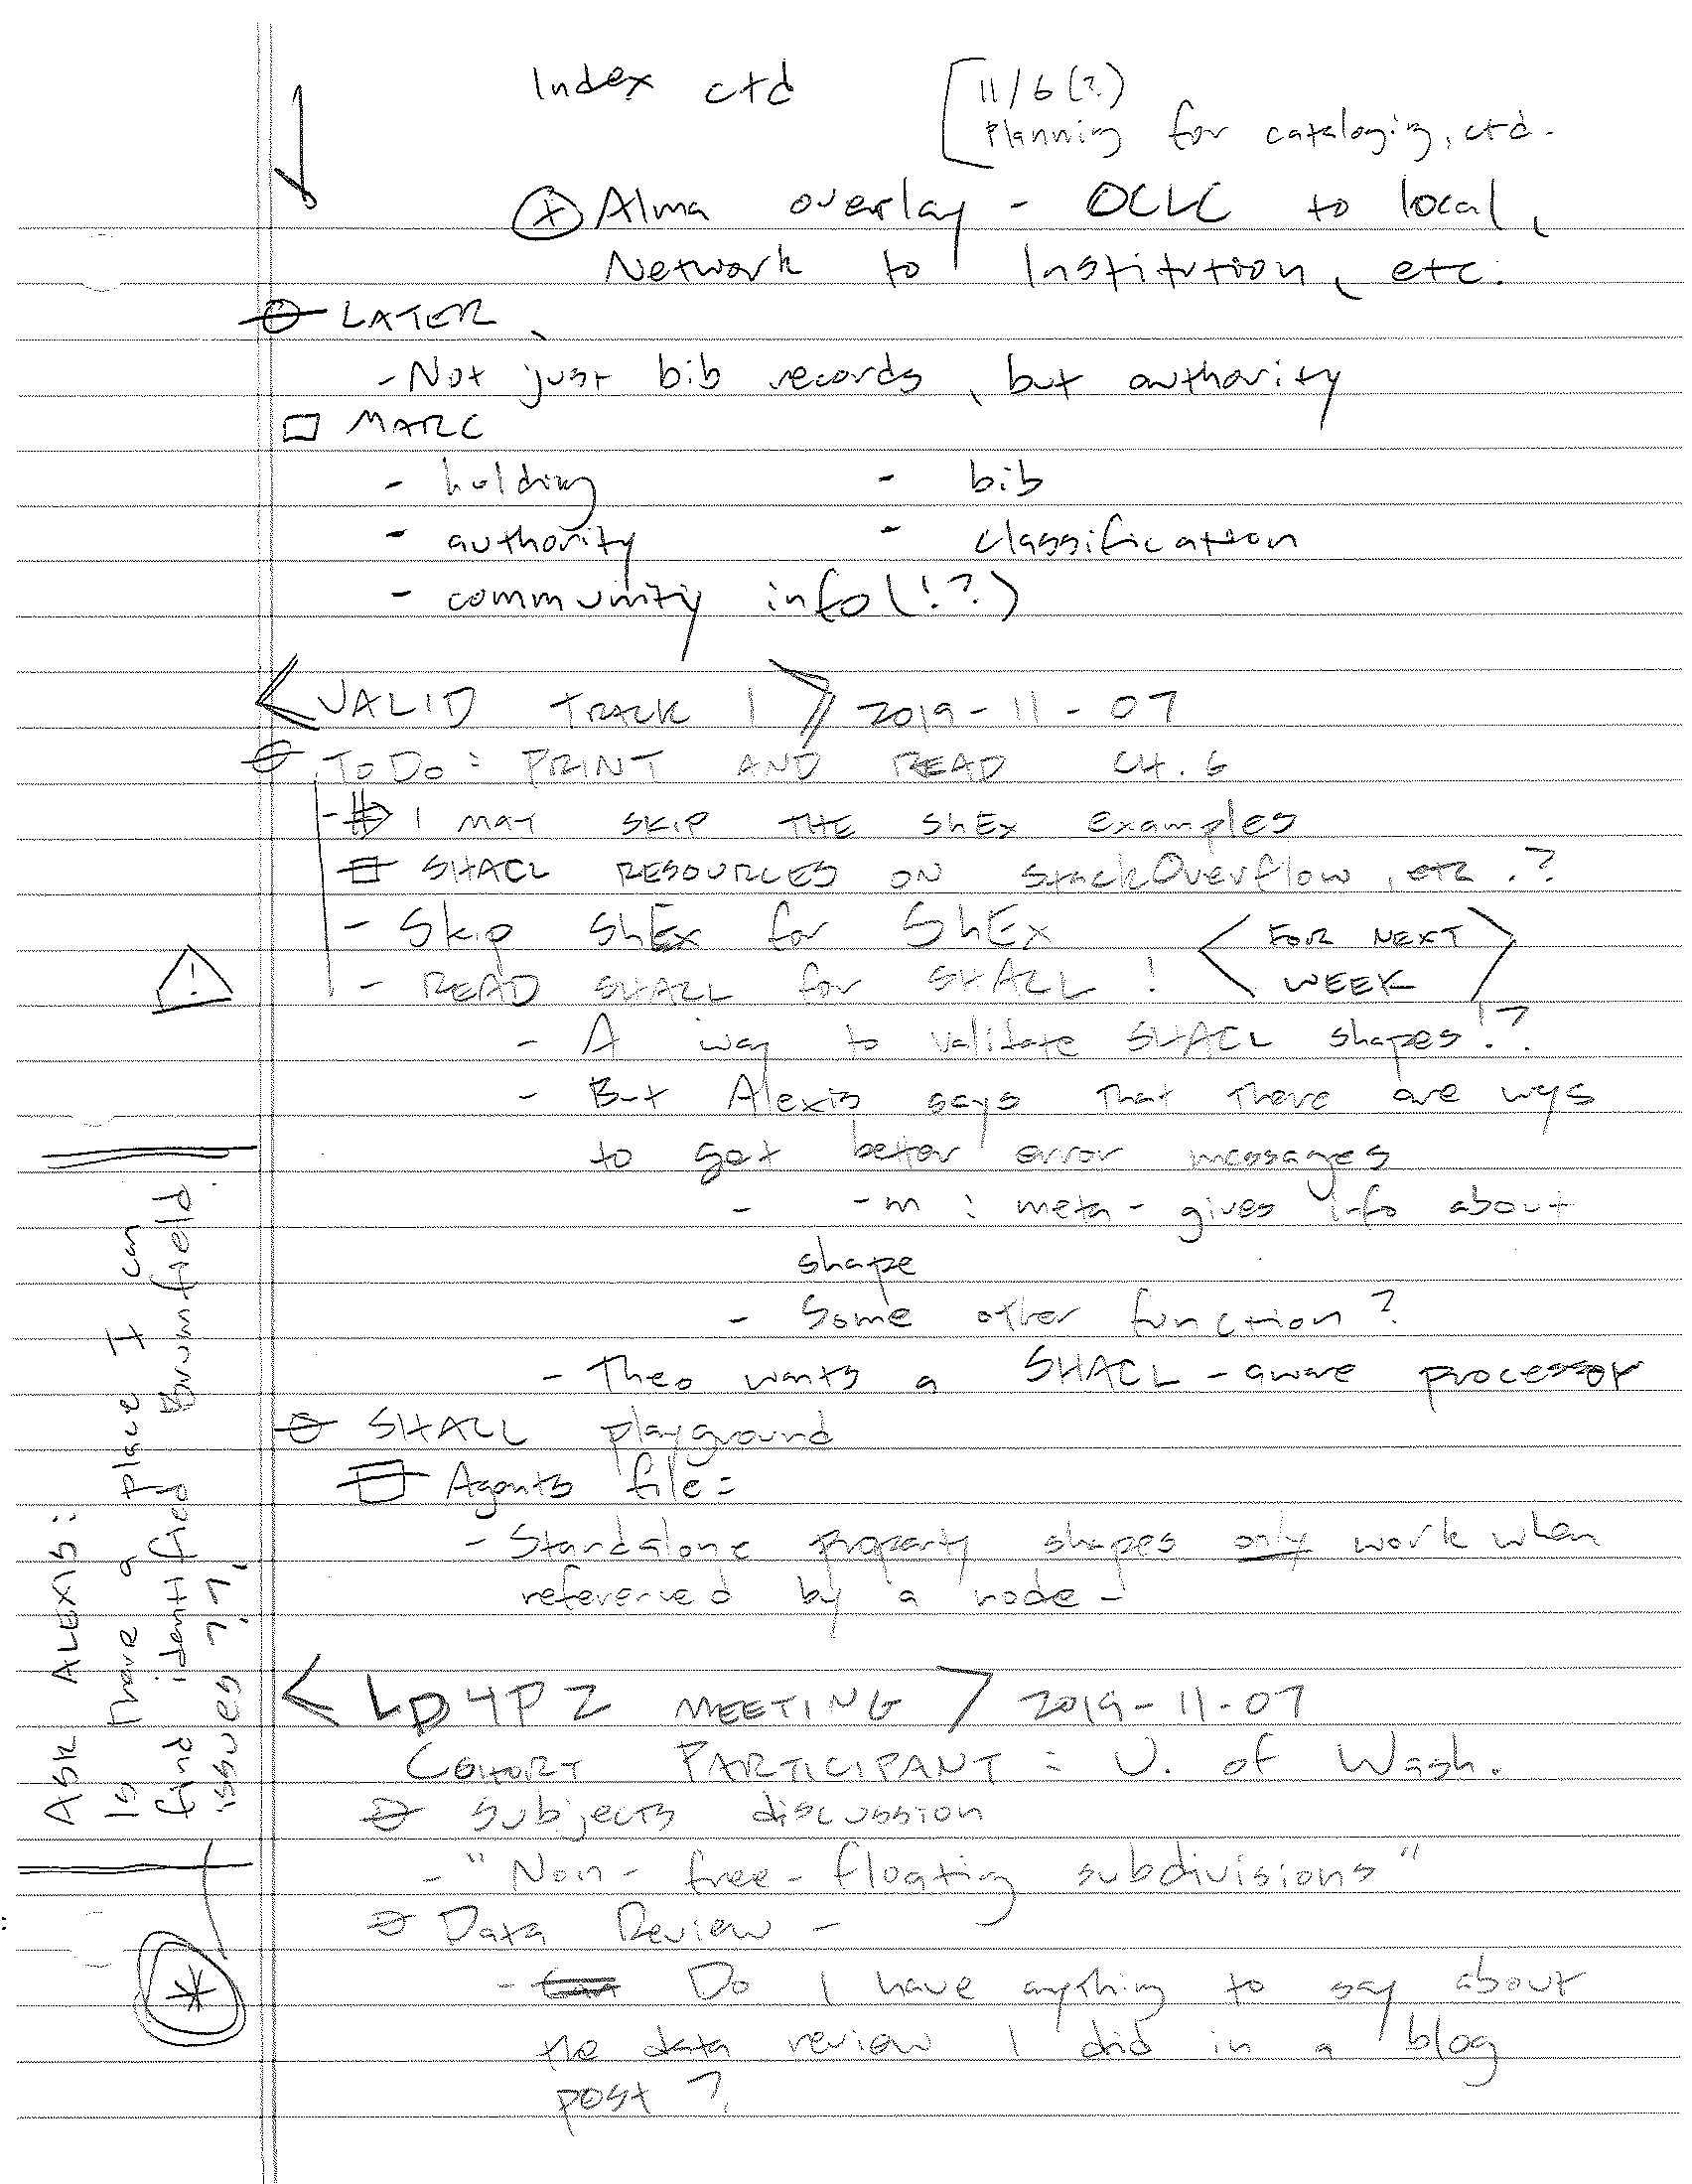 Index ctd
11/6(?)
Planning for cataloging, ctd.
Alma overlay - OCLC to local,
Network to Institution, etc.
LATER
- Not just bib records, but authority
MARC
- holding - bib
- authority - classification
- community info (!?)
<VALID TRACK 1> 2019-11-07
ToDo: PRINT AND READ CH. 6
- I MAY SKIP THE ShEx examples
SHACL RESOURCES ON StackOverflow, etc.?
- Skip ShEx for ShEx
<FOR NEXT
WEEK>
- READ SHACL for SHACL!
!
- A way to validate SHACL shapes!?
- But Alexis says that there are wys
to get better error messages
- -m : meta - gives info about
shape
- Some other function?
- Theo wants a SHACL-aware processor
SHACL playground
Agents file:
- Standalone property shapes only work when
referenced by a node -
<LD4P2 MEETING> 2019-11-07
COHORT PARTICIPANT: U. of Wash.
Subjects discussion
- "Non-free-floating subdivisions"
Data Review -
- Do I have anything to say about
the data review I did in a blog
post?
ASK ALEXIS:
Is there a place I can
find identified Brownfield
issues??